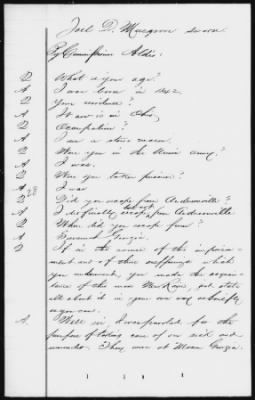 Joel D. Musgrove sworn
By Commissioner Aldis:
Q What is your age?
A I was born in 1842.
Q Your residence?
A It now is in Ohio.
Q Occupation?
A I am a stone mason.
Q Were you in the Union army?
A I was.
Q Were you taken prisoner?
A I was
Q Did you escape from Andersonville?
A I did finally escape from Andersonville.
Q Where did you escape from?
A Savannah Georgia.
Q If in the course of the imprison-
ment and of those sufferings which
you underwent, you made the acquain-
tance of the man state
all about it in your own way as briefly
as you can.
A. Where in I was paroled for the
purpose of taking care of our sick and
wounded. They were at Macon Georgia.